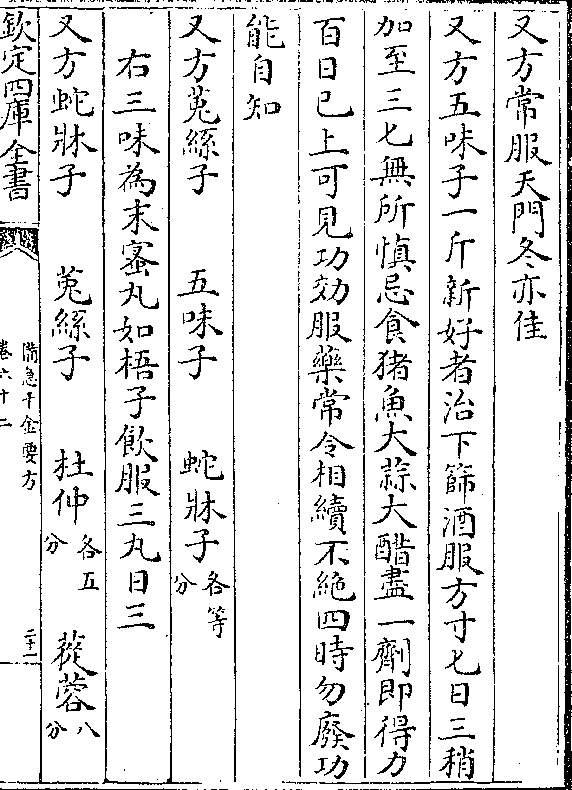 又方常服天門冬亦佳
又方五味子一斤新好者治下篩酒服方寸匕日三稍
加至三匕無所慎忌食猪魚大蒜大醋盡一劑即得力
百日已上可見功効服藥常令相續不絶四時勿廢功
能自知
又方菟絲子 五味子 蛇牀子各等分
右三味為末蜜丸如梧子飲服三丸日三
又方蛇牀子 菟絲子 杜仲各五分 蓯蓉八分
欽定四庫全書
備急千金要方
卷六十二
二十一